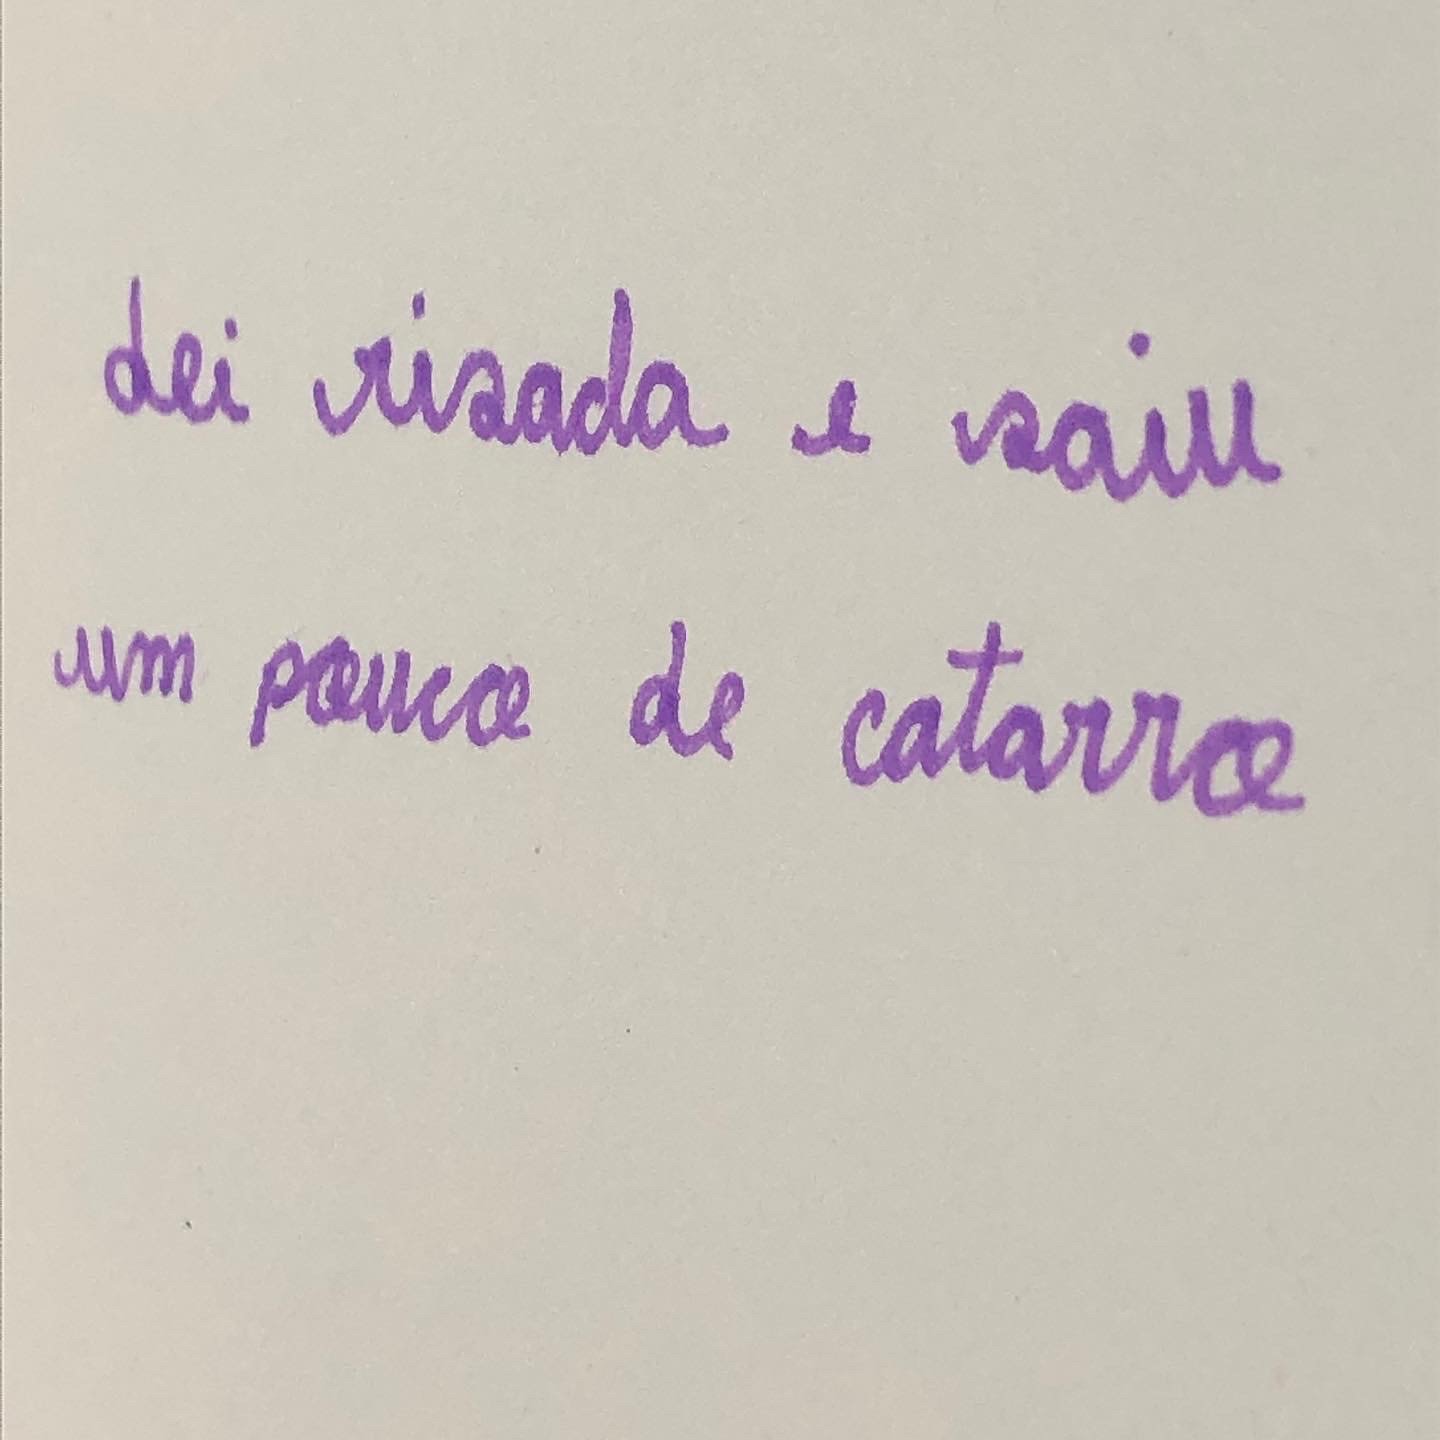 dei risada e saiu
um pouco de catarro